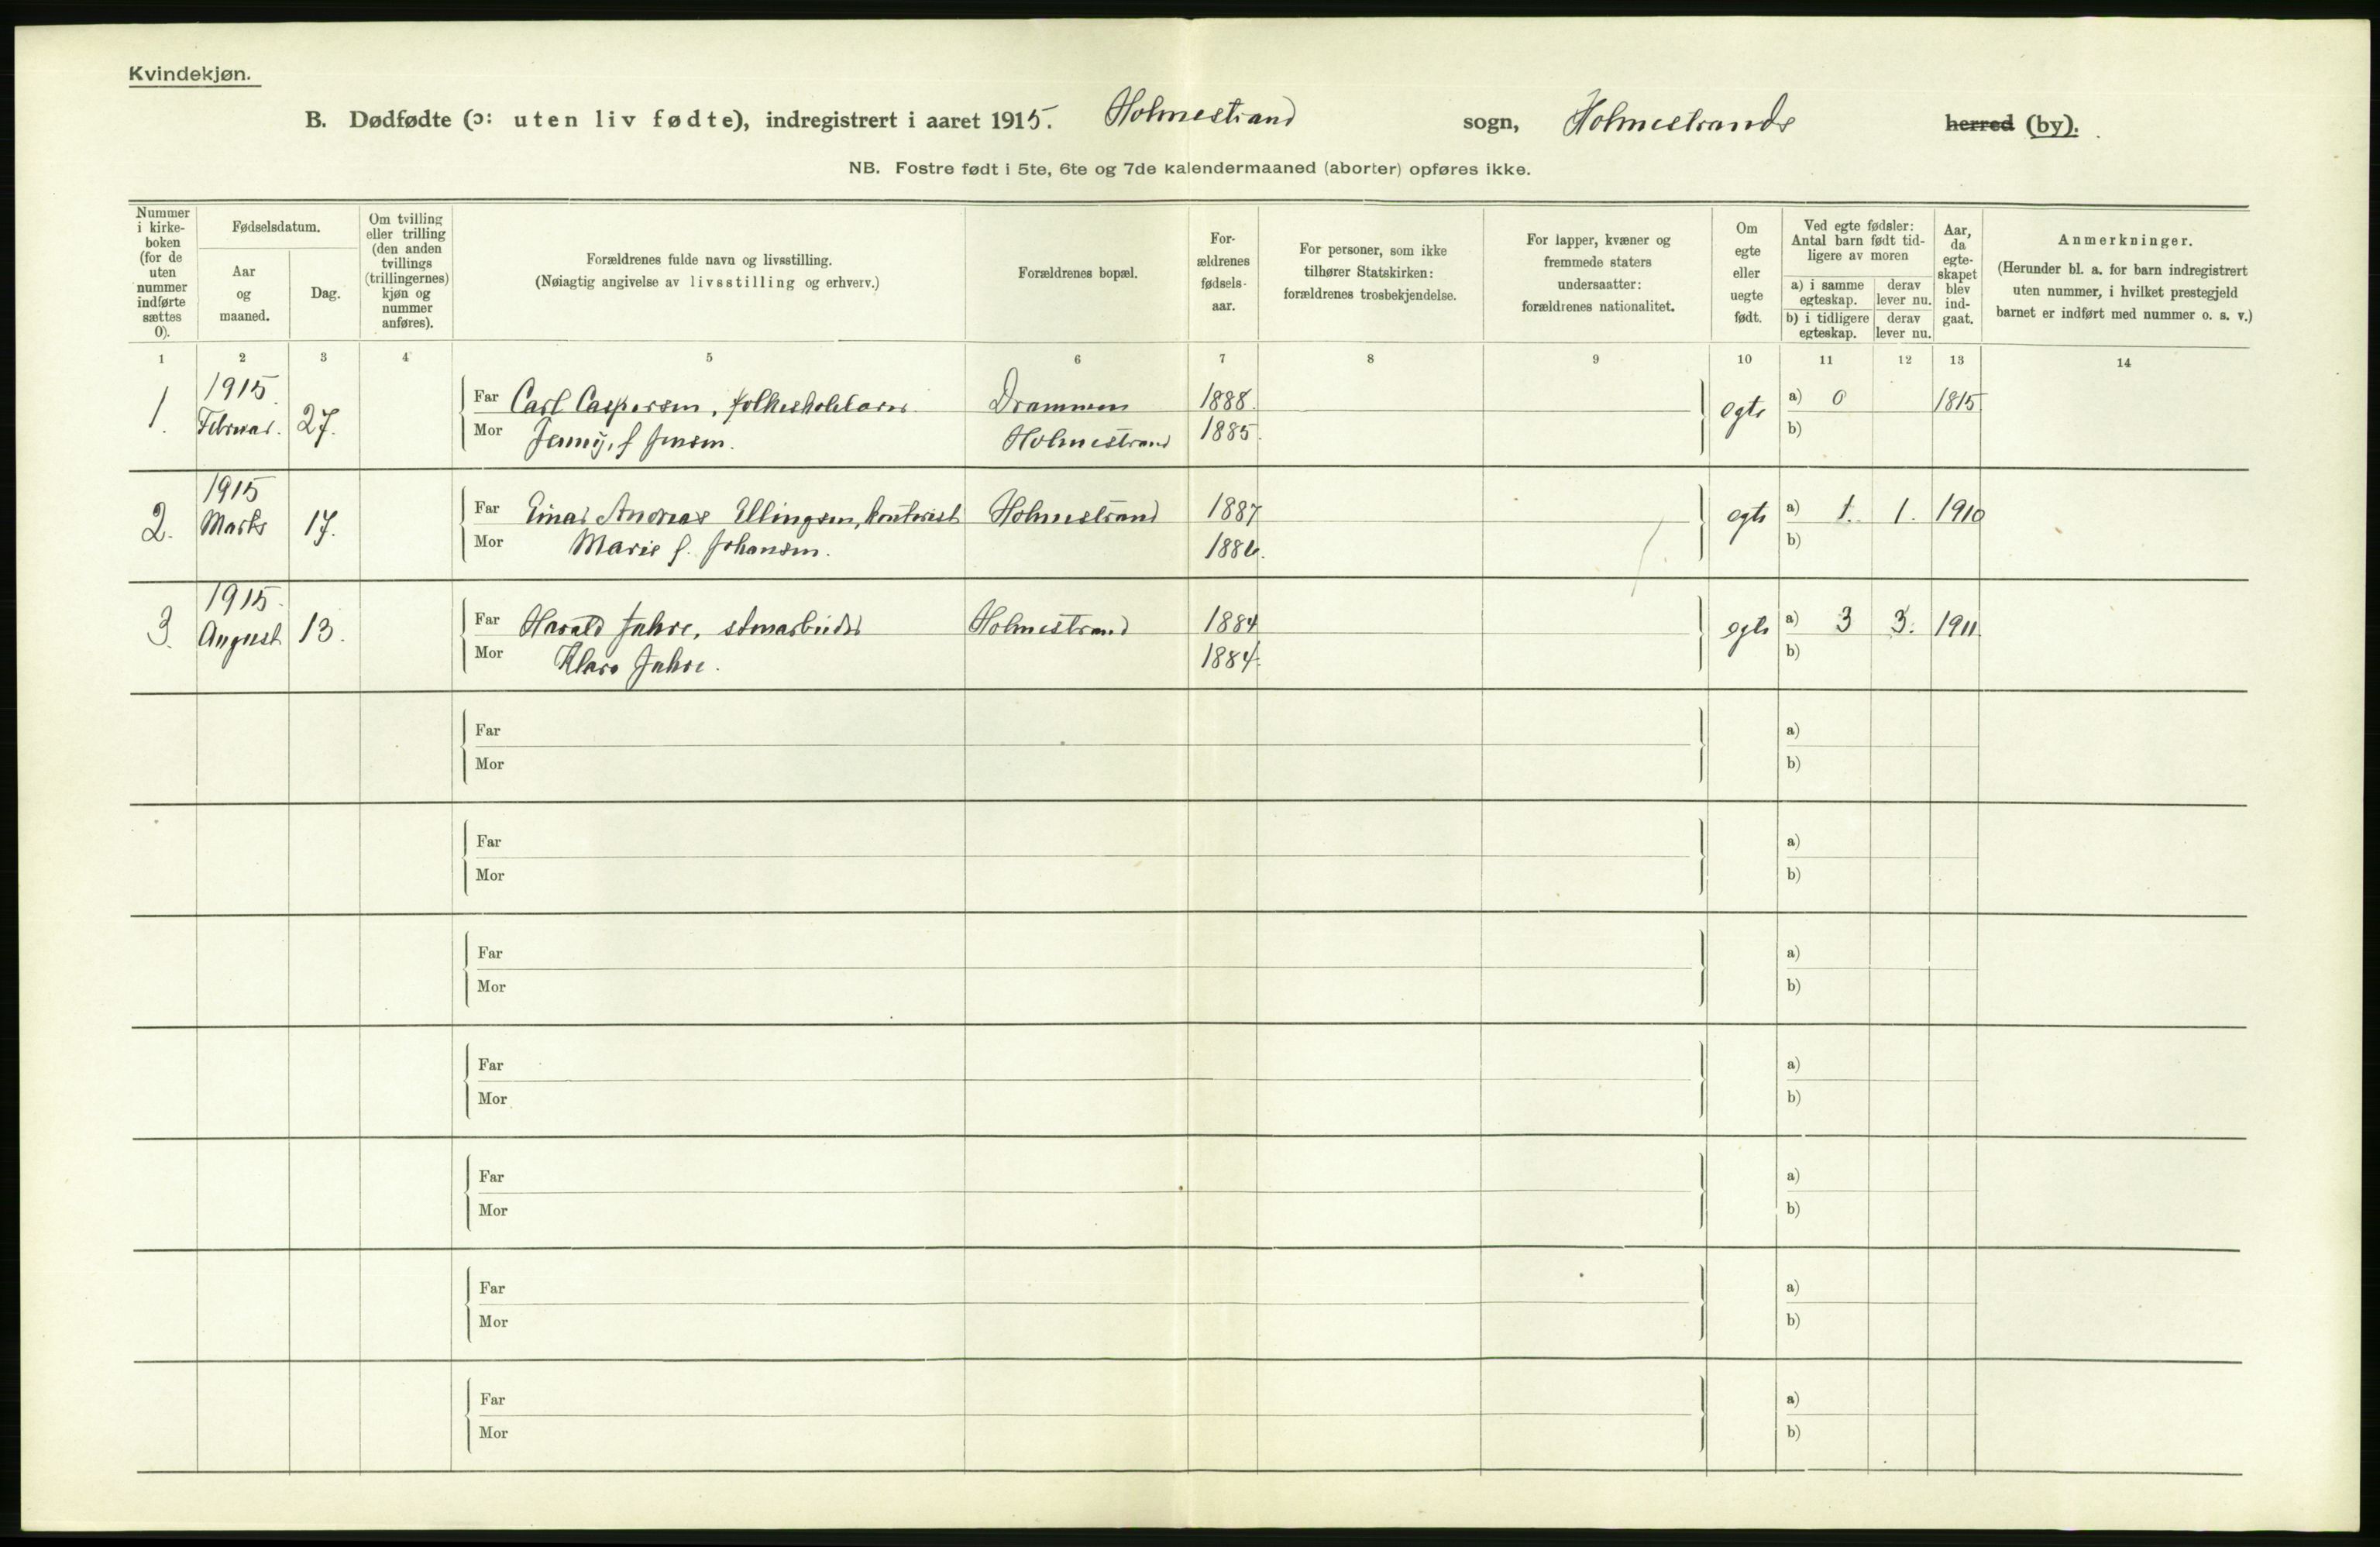 Kvindekjøn.
B. Dødfødte (ɔ: uten liv fødte), indregistrert i aaret 1915. Holmestrand sogn, Holmestrands herred (by).
NB. Fostre født i 5te, 6te og 7de kalendermaaned (aborter) opføres ikke.
Nummer i kirke-boken (for de uten nummer indførte sættes 0).
Fødselsdatum.
Aar og maaned.
Dag.
Om tvilling eller trilling (den anden tvillings (trillingernes) kjøn og nummer anføres).
Forældrenes fulde navn og livsstilling.
(Nøiagtig angivelse av livsstilling og erhverv.)
Forældrenes bopæl.
For-ældrenes fødsels-aar.
For personer, som ikke tilhører Statskirken: forældrenes trosbekjendelse.
For lapper, kvæner og fremmede staters undersaatter: forældrenes nationalitet.
Om egte eller uegte født.
Ved egte fødsler: Antal barn født tid-ligere av moren
a) i samme egteskap.
derav lever nu.
b) i tidligere egteskap.
derav lever nu.
Aar, da egte-skapet blev ind-gaat.
Anmerkninger.
(Herunder bl. a. for barn indregistrert uten nummer, i hvilket prestegjeld barnet er indført med nummer o. s. v.)
1 2 3 4 5 6 7 8 9 10 11 12 13 14
1. 1915. Februar. 27. Far Carl Caspersen, folkeskolelærer Drammen 1888. egte a) 0 1815
Mor Jenny, f Jensen. Holmestrand 1885. b)
2. 1915 Marts 17. Far Einar Andreas Ellingsen, kontorist Holmestrand 1887 egte a) 1. 1. 1910
Mor Marie f. Johansen. 1886. b)
3. 1915. August 13. Far Harald Jahre, Holmestrand 1884 egte a) 3 3. 1911.
Mor Klara Jahre. 1884. b)
Far a)
Mor b)
Far a)
Mor b)
Far a)
Mor b)
Far a)
Mor b)
Far a)
Mor b)
Far a)
Mor b)
Far a)
Mor b)